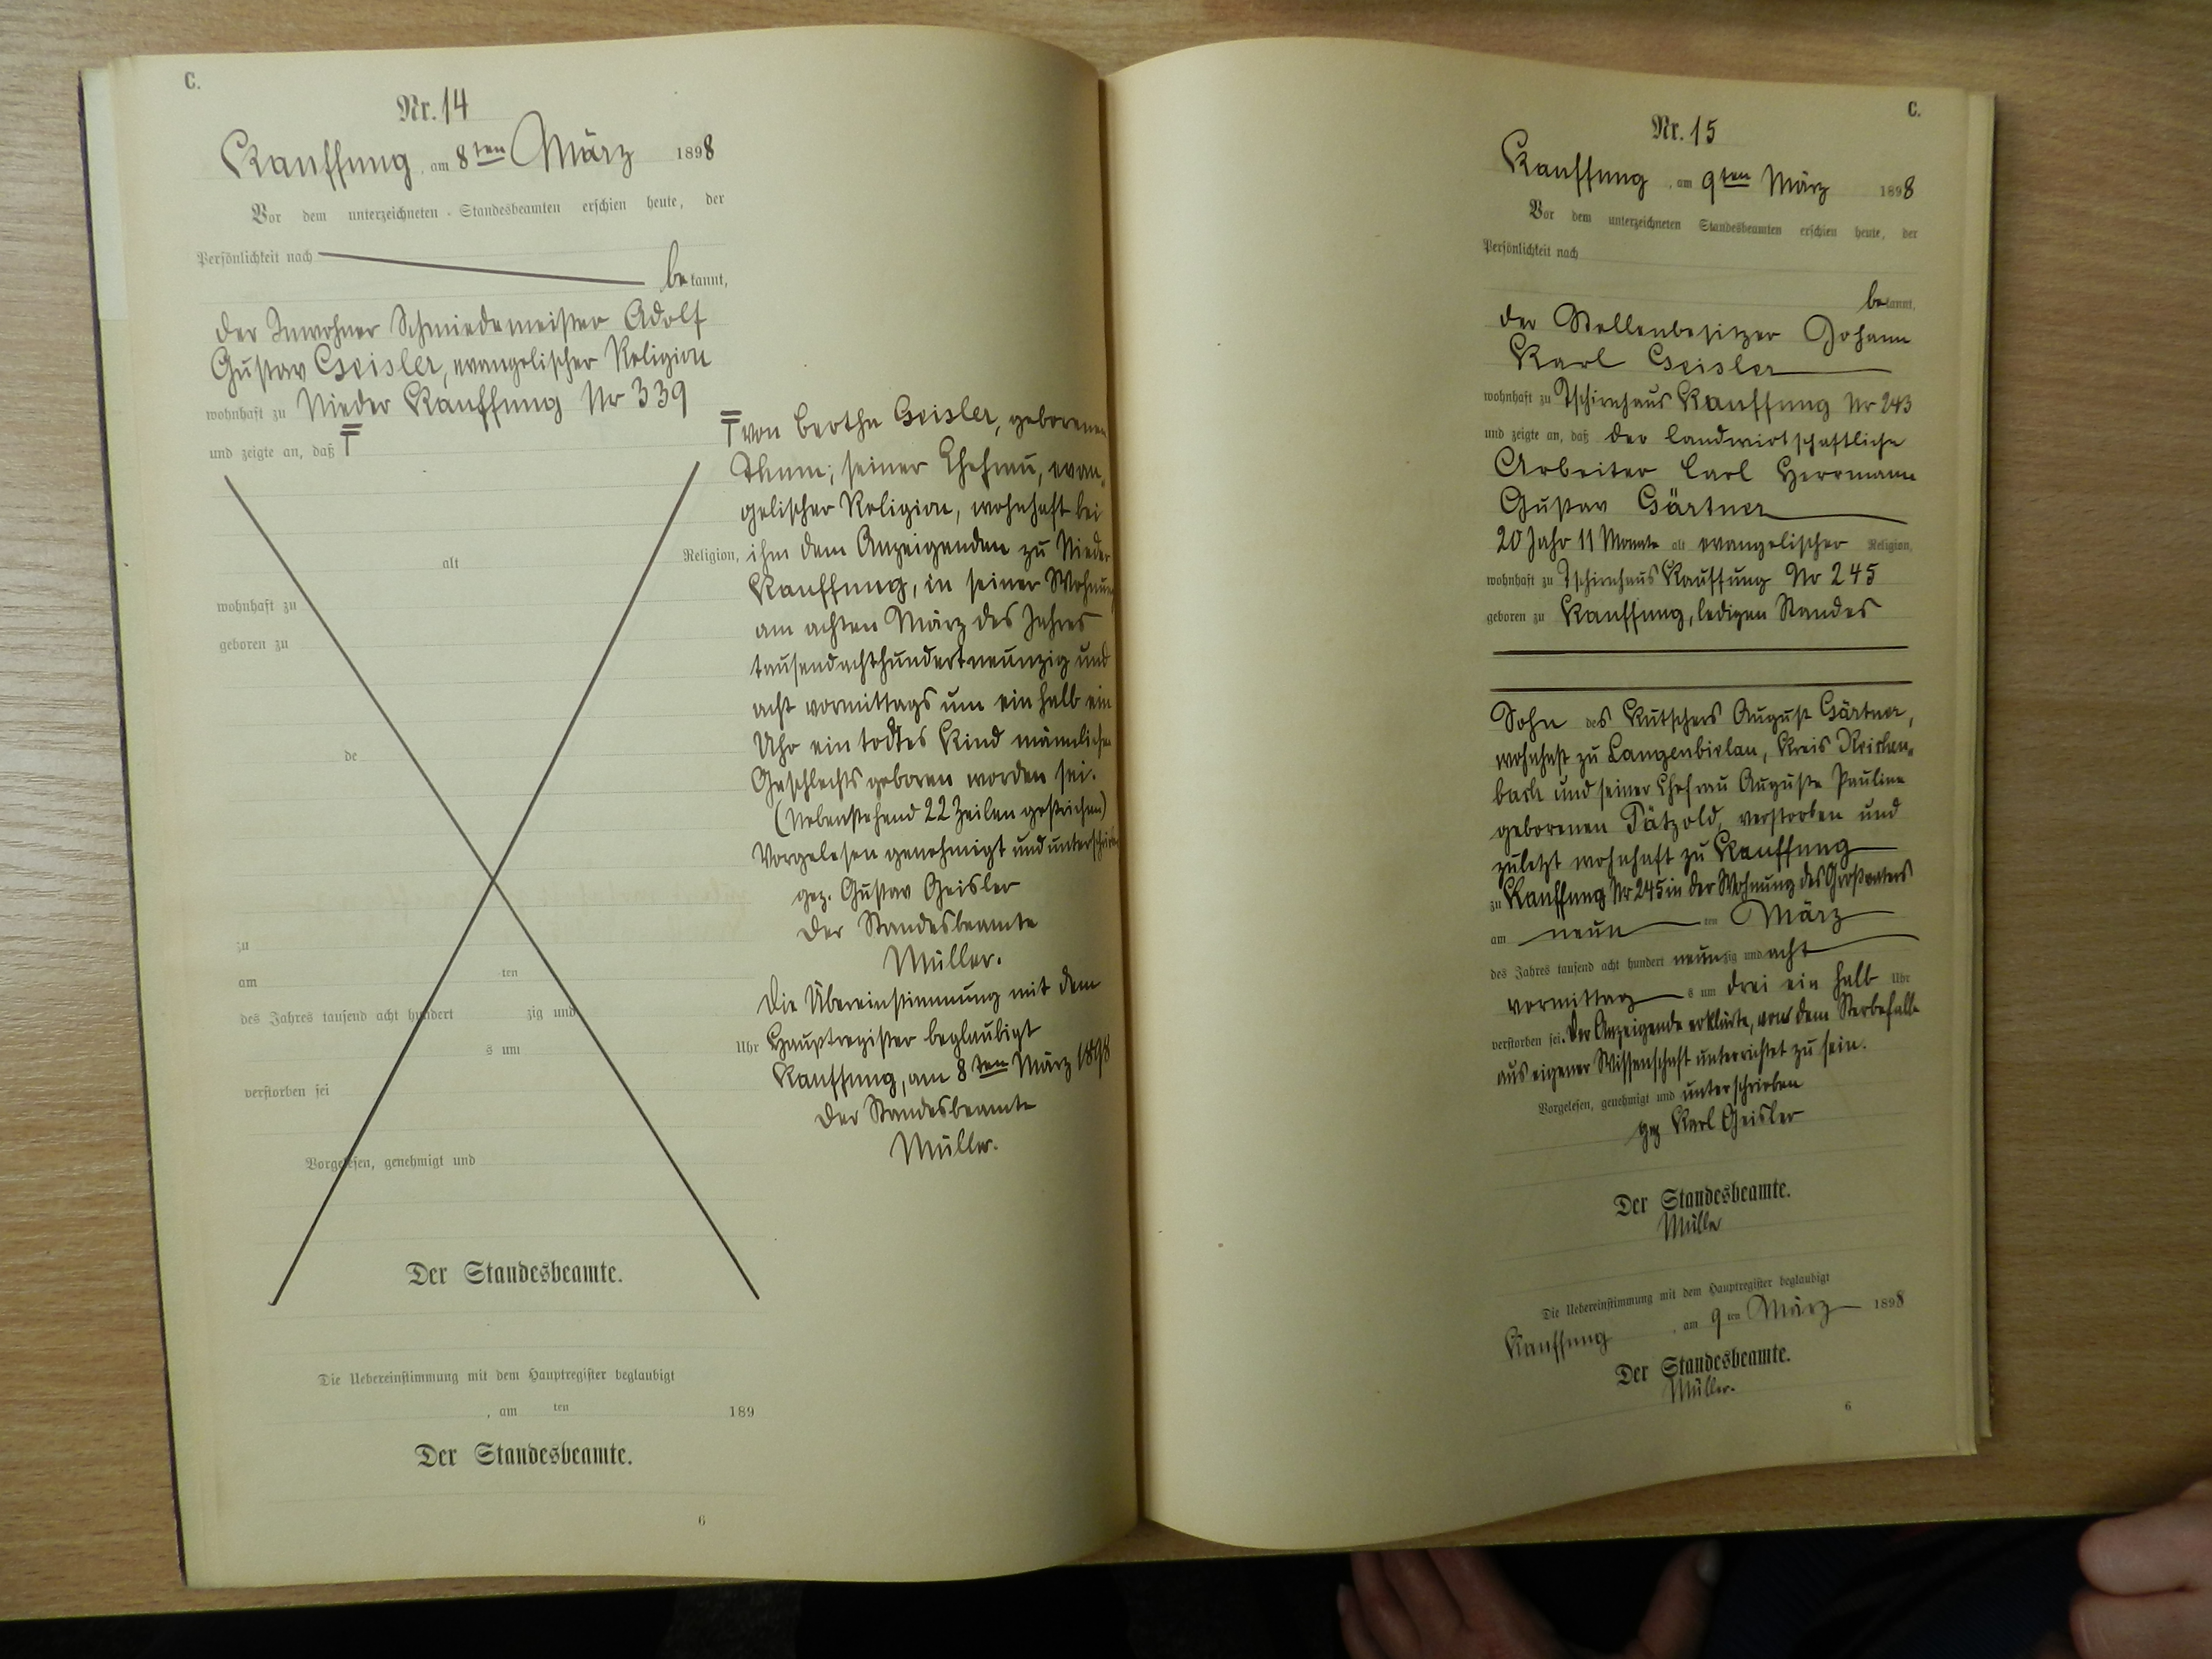 C.
Nr. 14
Kauffung, am 8ten März 1898
Vor dem unterzeichneten Standesbeamten erschien heute, der
Persönlichkeit nach
bekannt,
der Inwohner Schmiedemeister Adolf
Gustav Geisler, evangelischer Religion
wohnhaft zu Nieder Kauffung Nr 339
und zeigte an, daß
alt Religion,
wohnhaft zu
geboren zu
de
zu
am ten
des Jahres tausend acht hundert zig und
s um Uhr
verstorben sei
Vorgelesen, genehmigt und
Der Standesbeamte.
Die Uebereinstimmung mit dem Hauptregister beglaubigt
, am ten 189
Der Standesbeamte.
6
von Bertha Geisler, geborenen
seiner Ehefrau, evan-
gelischer Religion, wohnhaft bei
ihm dem Anzeigenden zu Nieder
Kauffung, in seiner Wohnung
am achten März des Jahres
tausendachthundertneunzig und
acht vormittags um ein halb ein
Uhr ein todtes Kind männlichen
Geschlechts geboren worden sei.
(Nebenstehend 22 Zeilen gestrichen)
Vorgelesen genehmigt und unterschrieben
gez. Gustav Geisler
Der Standesbeamte
Müller.
Die Übereinstimmung mit dem
Hauptregister beglaubigt
Kauffung, am 8ten März 1898
Der Standesbeamte
Müller.
C.
Nr. 15
Kauffung, am 9ten März 1898
Vor dem unterzeichneten Standesbeamten erschien heute, der
Persönlichkeit nach
bekannt,
der Stellenbesitzer Johann
Karl Geisler
wohnhaft zu Tschirnhaus Kauffung Nr 243
und zeigte an, daß der landwirtschaftliche
Arbeiter Carl Herrmann
Gustav Gärtner
20 Jahr 11 Monate alt evangelischer Religion,
wohnhaft zu Tschirnhaus Kauffung Nr 245
geboren zu Kauffung, ledigen Standes
Sohn des Kutschers August Gärtner,
wohnhaft zu Langenbielau, Kreis Reichen-
bach und seiner Ehefrau Auguste Pauline
geborenen Pätzold, verstorben und
zuletzt wohnhaft zu Kauffung
zu Kauffung Nr 245 in der Wohnung des Großvaters
am neun ten März
des Jahres tausend acht hundert neunzig und acht
vormittag s um drei ein halb Uhr
verstorben sei. Der Anzeigende erklärte, von dem Sterbefalle
aus eigener Wissenschaft unterrichtet zu sein.
Vorgelesen, genehmigt und unterschrieben
gez Karl Geisler
Der Standesbeamte.
Müller
Die Uebereinstimmung mit dem Hauptregister beglaubigt
Kauffung, am 9 ten März 1898
Der Standesbeamte.
Müller.
6